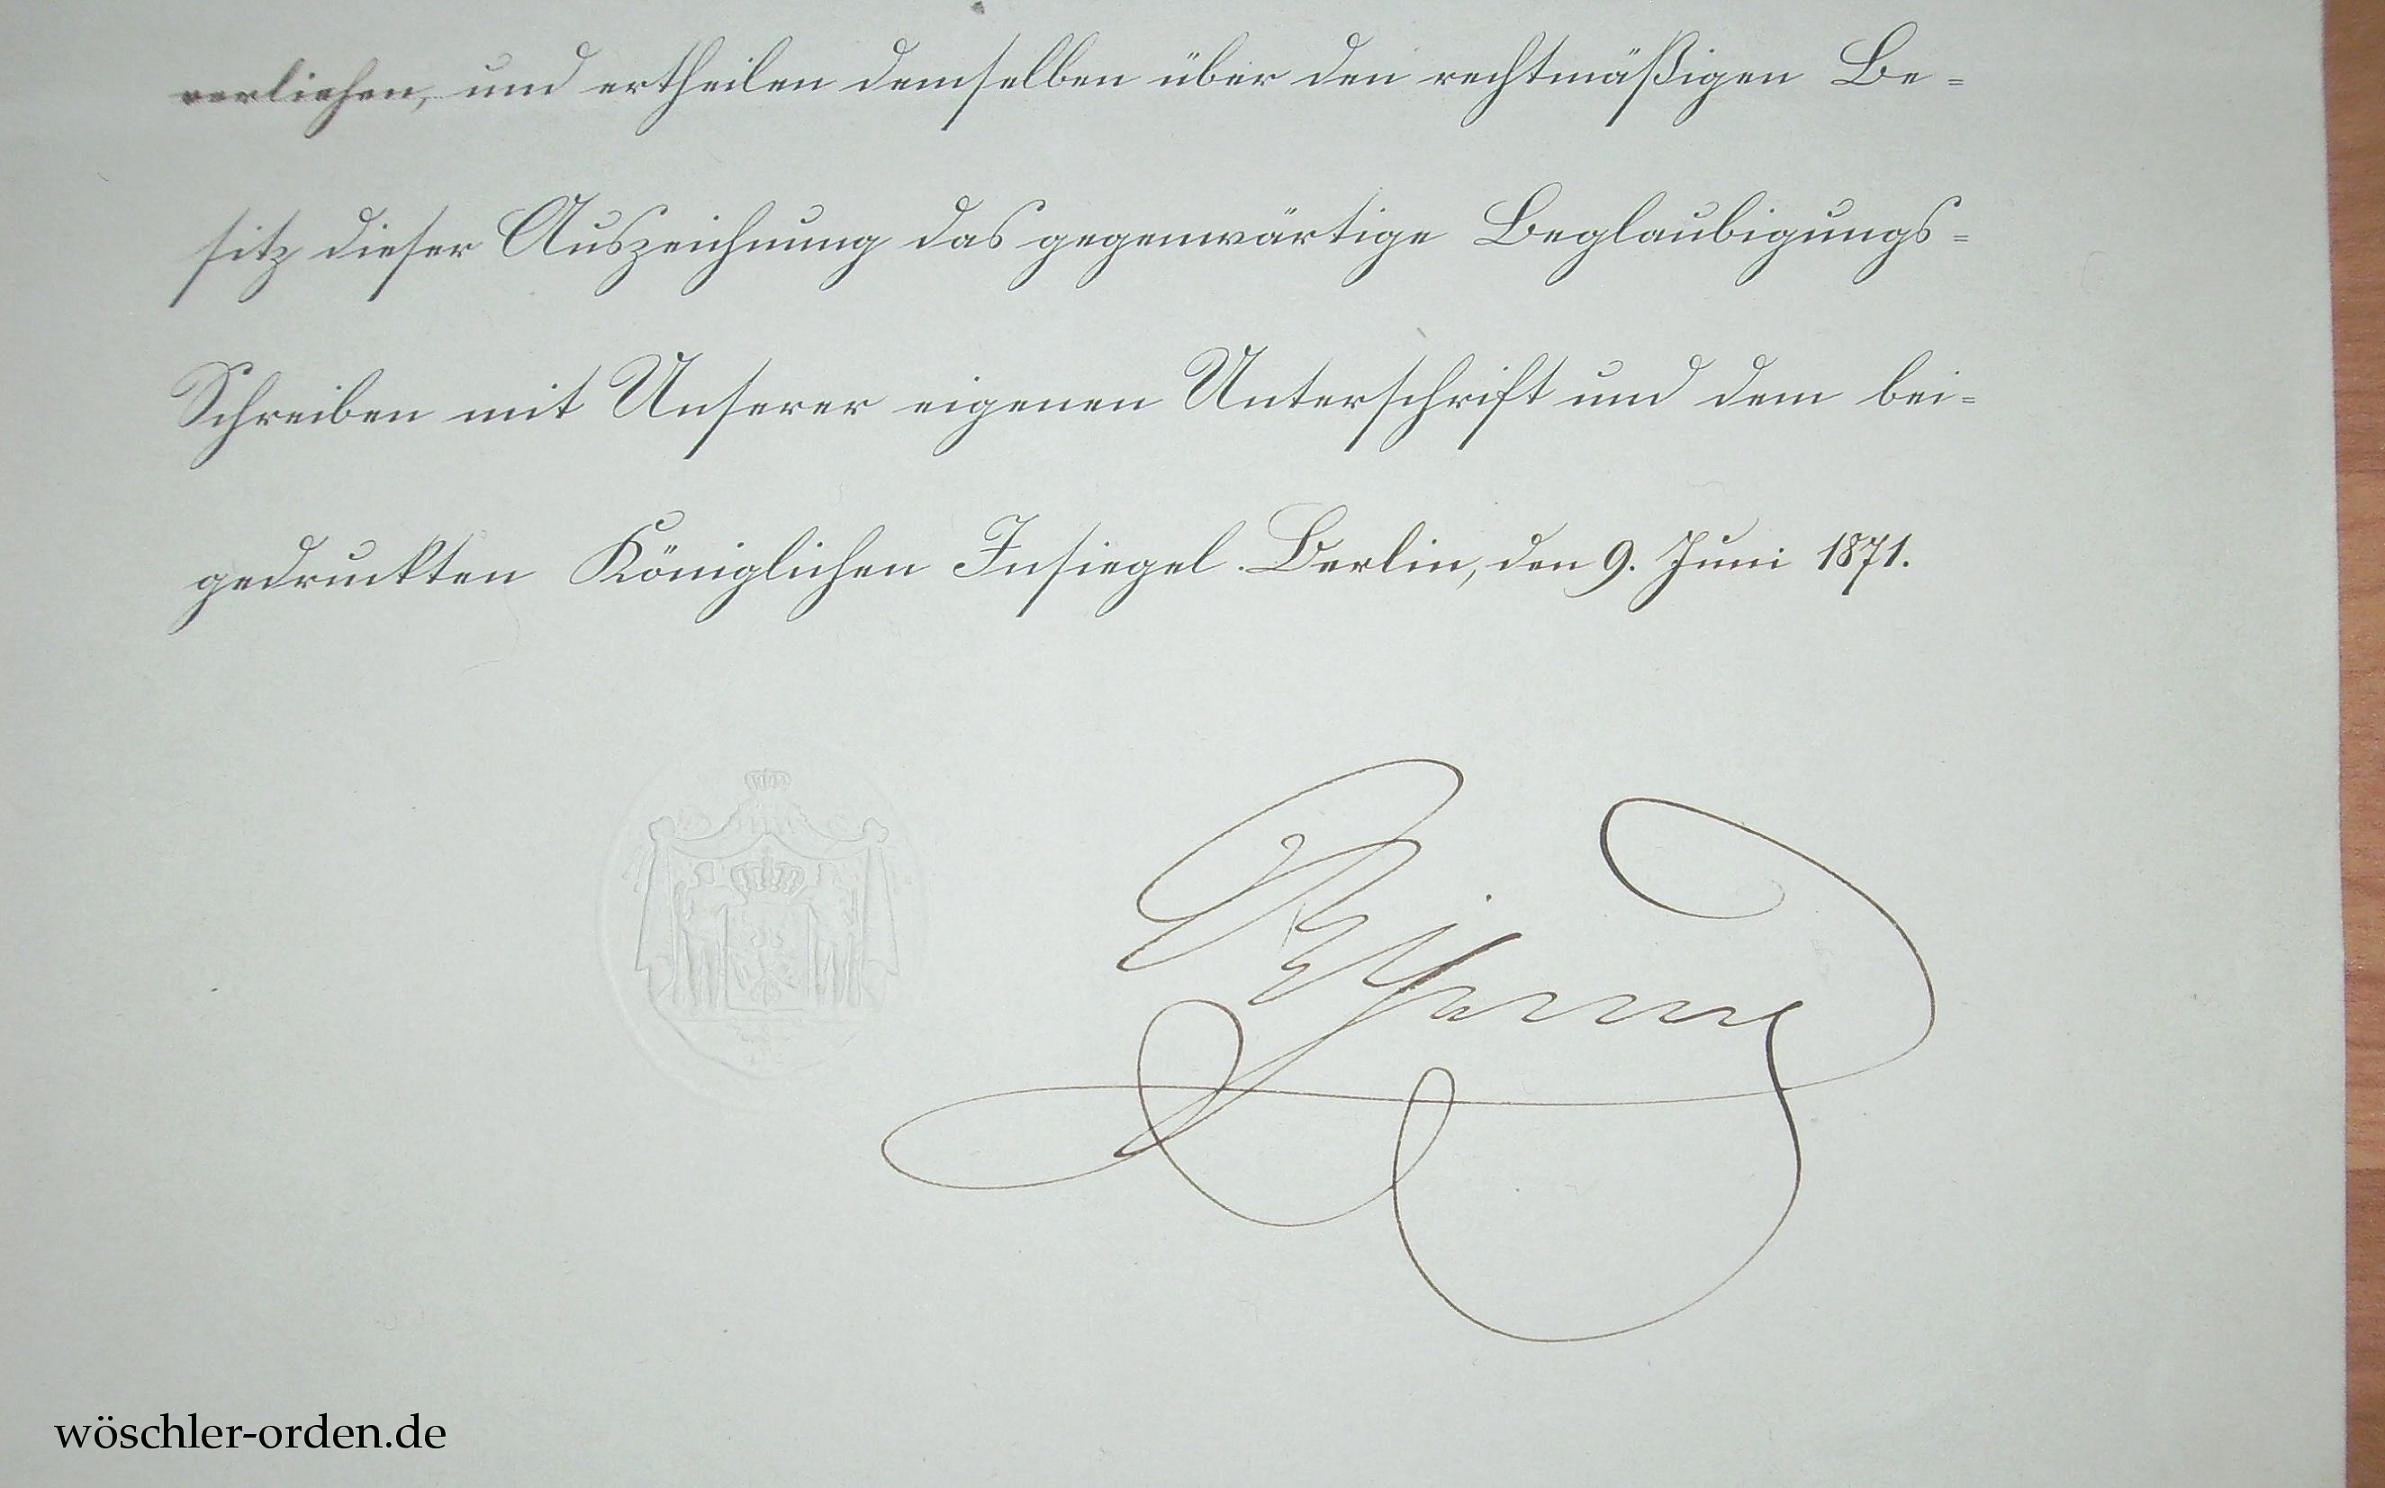 verliehen, und ertheilen demselben über den rechtmäßigen Be=
sitz dieser Auszeichnung das gegenwärtige Beglaubigungs=
Schreiben mit Unserer eigenen Unterschrift und dem bei=
gedruckten Königlichen Insiegel. Berlin, den 9. Juni 1871.
wöschler-orden.de